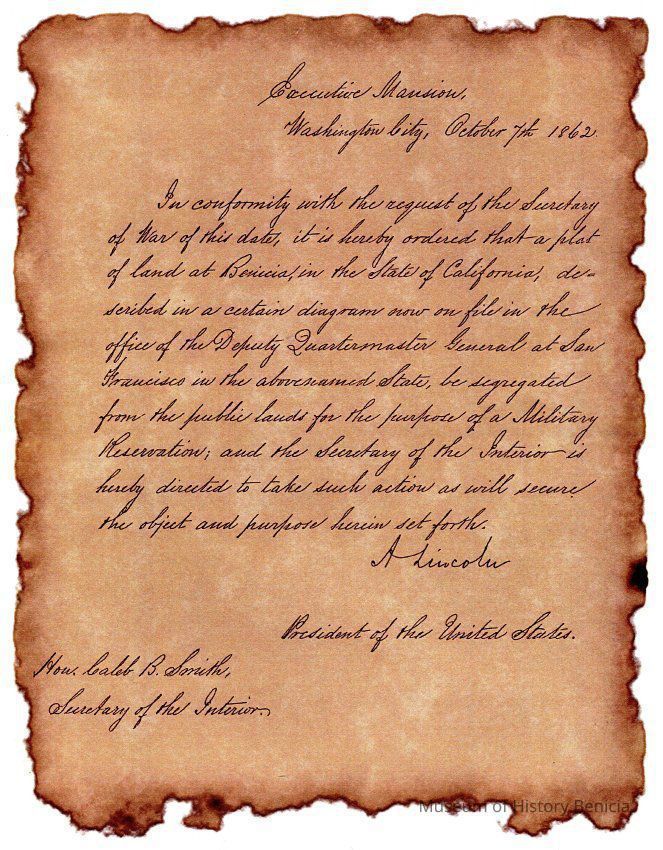 Executive Mansion,
Washington City, October 7th 1862.
In conformity with the request of the Secretary
of War of this date, it is hereby ordered that a plat
of land at Benicia, in the State of California, de-
scribed in a certain diagram now on file in the
office of the Deputy Quartermaster General at San
Francisco in the abovenamed State, be segregated
from the public lands for the purpose of a Military
Reservation; and the Secretary of the Interior is
hereby directed to take such action as will secure
the object and purpose herein set forth.
A Lincoln
President of the United States.
Hon. Caleb B. Smith,
Secretary of the Interior.
Museum of History Benicia